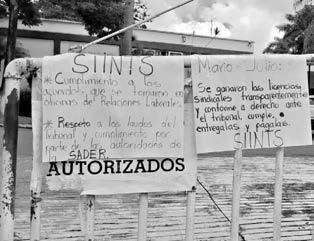 SIINTS
* Cumplimiento a los
acuerdos que se tomaron en
oficinas de Relaciones Laborales.
* Respeto a los laudos del
tribunal y cumplimiento por
parte de las autoridades de
la SADER.
AUTORIZADOS
Mario - Julio:
Se ganaron las licencias
Sindicales transparentemente
y conforme a derecho ante
el tribunal, cumple,
entregalas y pagalas.
SIINTS